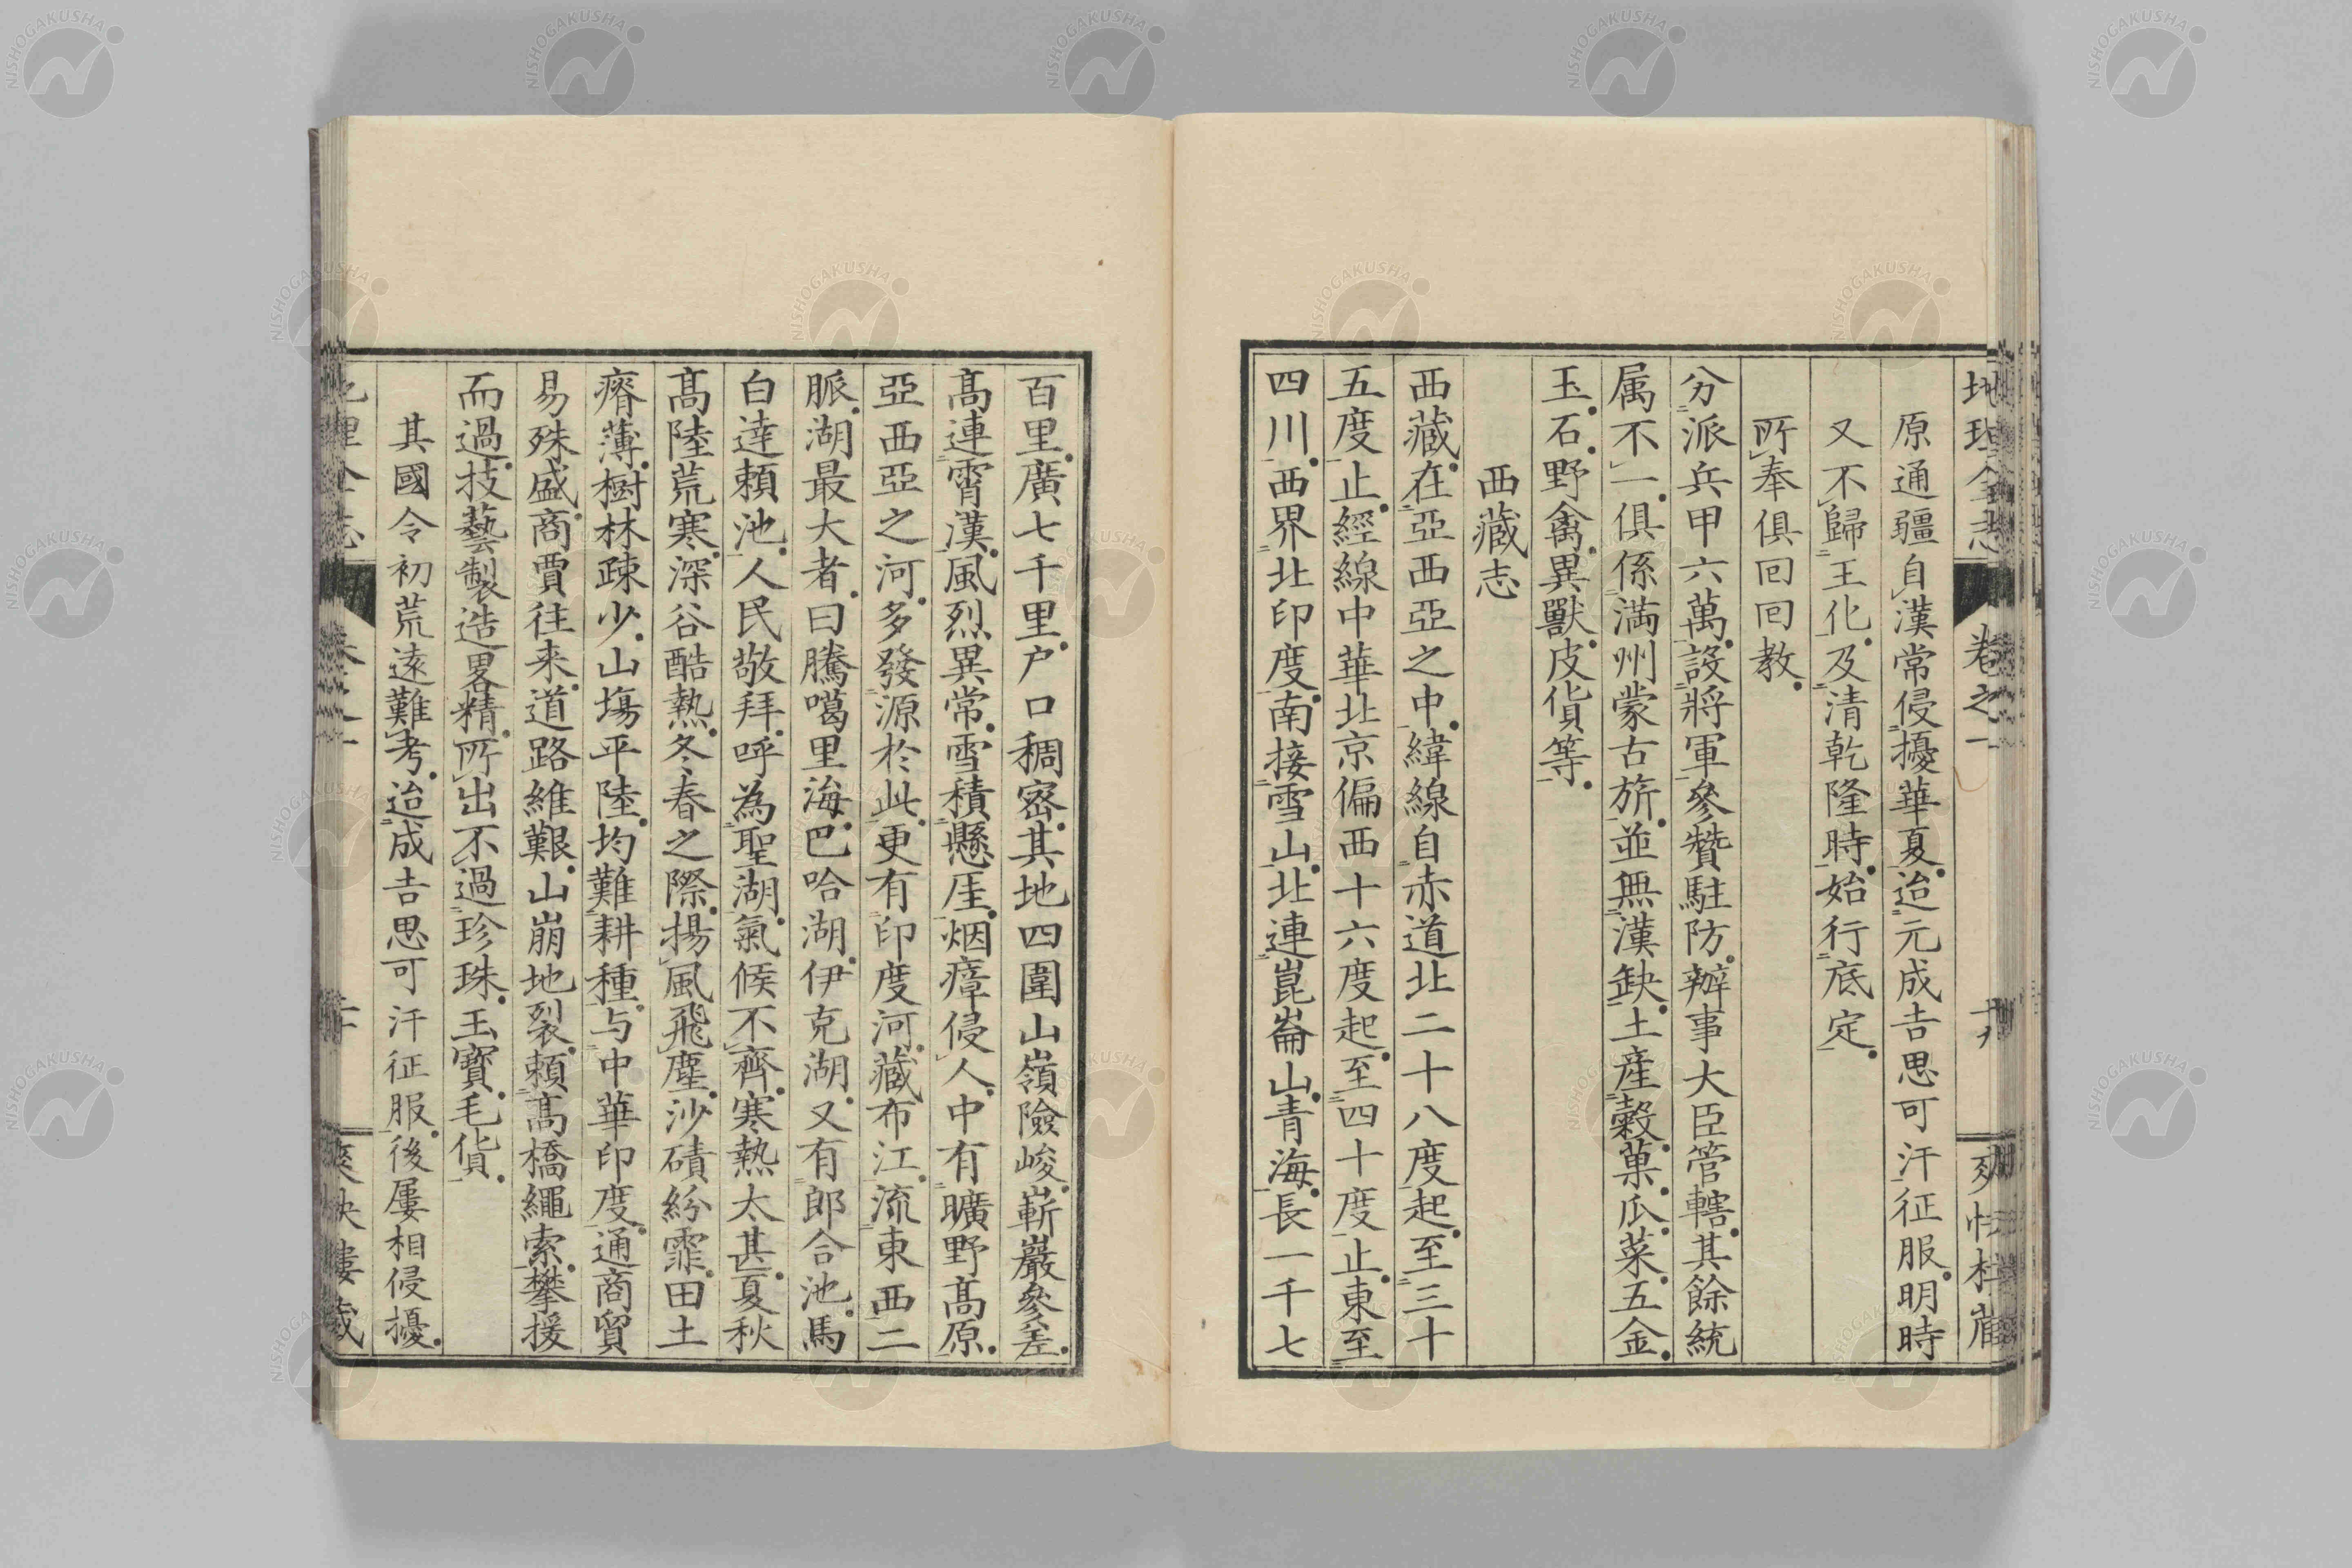 地理全志 卷之一 十九 爽快樓藏
原通疆自漢常侵擾華夏迨元成吉思可汗征服明時
又不歸王化及清乾隆時始行底定
所奉俱回回教
分派兵甲六萬設將軍參贊駐防辦事大臣管轄其餘統
属不一俱係滿州蒙古旂並無漢缺土産穀菓瓜菜五金
玉石野禽異獸皮貨等
西藏志
西藏在亞西亞之中緯線自赤道北二十八度起至三十
五度止經線中華北京偏西十六度起至四十度止東至
四川西界北印度南接雪山北連崑崙山青海長一千七
百里廣七千里户口稠密其地四圍山嶺險峻嶄巖參差
髙連霄漢風烈異常雪積懸厓烟瘴侵人中有曠野髙原
亞西亞之河多發源於此更有印度河藏布江流東西二
脈湖最大者曰騰噶里海巴哈湖伊克湖又有郎合池馬
白達頼池人民敬拜呼為聖湖氣候不齊寒熱太甚夏秋
髙陸荒寒深谷酷熱冬春之際揚風飛塵沙磧紛霏田土
瘠薄樹林疎少山塲平陸均難耕種与中華印度通商貿
易殊盛商賈往来道路維艱山崩地裂頼髙橋繩索攀援
而過技藝製造畧精所出不過珍珠玉寳毛貨
其國令初荒遠難考迨成吉思可汗征服後屢相侵擾
地理全志 卷之一 二十 爽快樓藏
NISHOGAKUSHA